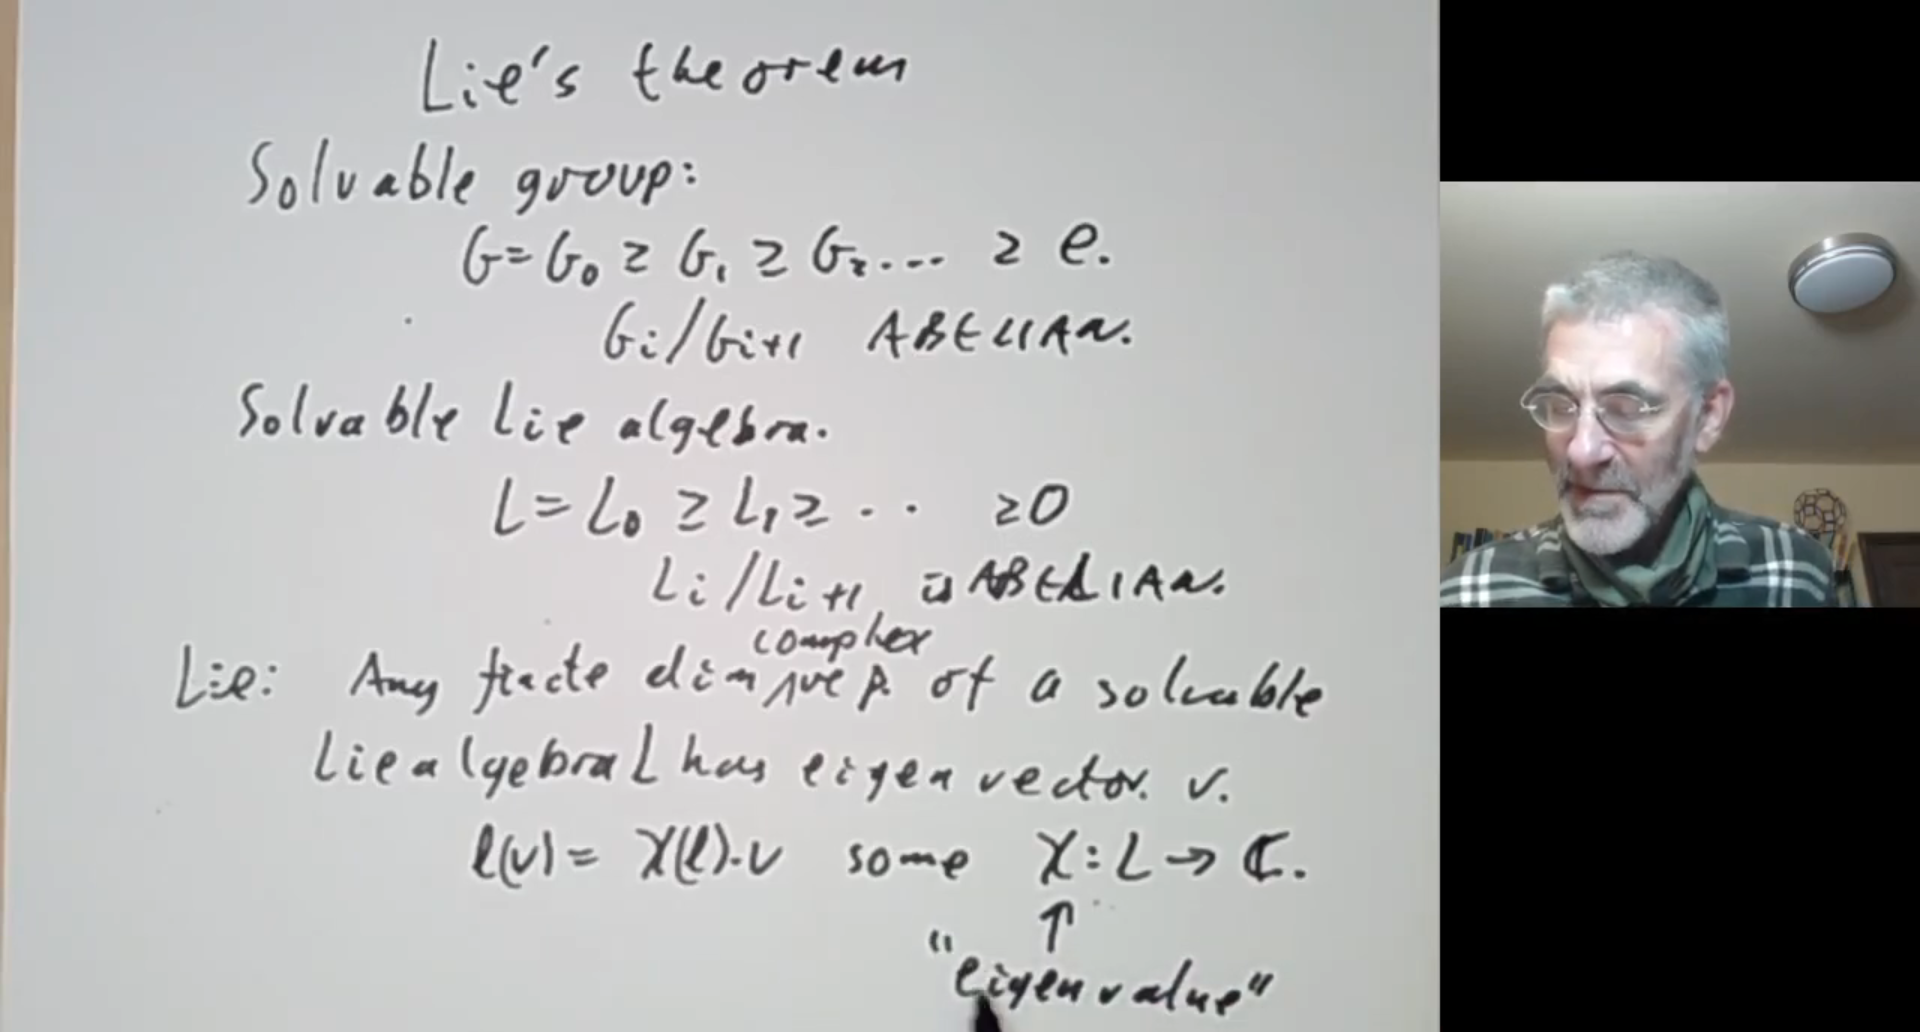 Lie's theorem
Solvable group:
G = G₀ ≥ G₁ ≥ G₂ .... ≥ e.
Gi/Gi+1 ABELIAN.
Solvable Lie algebra.
L = L₀ ≥ L₁ ≥ . . ≥ 0
Li/Li+1 is ABELIAN.
complex
Lie: Any finite dim rep. of a solvable
Lie algebra L has eigenvector. v.
l(v) = χ(l)·v some χ: L → ℂ.
↑
"eigenvalue"